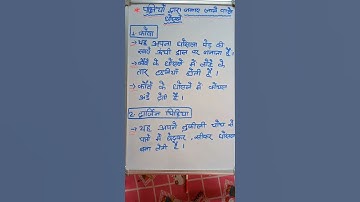 * पक्षियों द्वारा बनाए जाने वाले
घोंसले
1. कौवा
→ यह अपना घोंसला पेड़ की
सबसे ऊंची डाल पर बनाता है।
→ कौवे के घोंसले में लोहे के
तार टहनियाँ होती हैं।
→ कौवे के घोंसले में कोयल
अंडे देती है।
2. दर्जिन चिड़िया
→ यह अपने नुकीली चोंच से
पत्तों में छेदकर, सीकर घोंसला
बना लेती है।